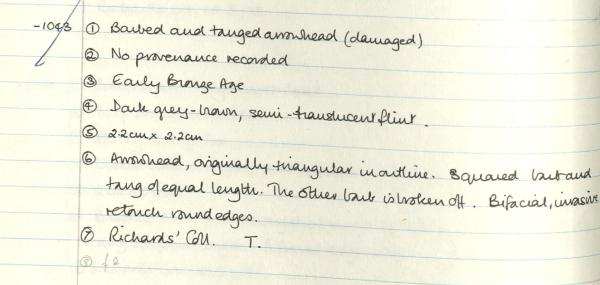 -1043 ① Barbed and tanged arrowhead (damaged)
② No provenance recorded
③ Early Bronze Age
④ Dark grey-brown, semi-translucent flint.
⑤ 2.2cm x 2.2cm
⑥ Arrowhead, originally triangular in outline. Squared barb and
tang of equal length. The other barb is broken off. Bifacial, invasive
retouch round edges.
⑦ Richards' Coll. T.
⑧ £2